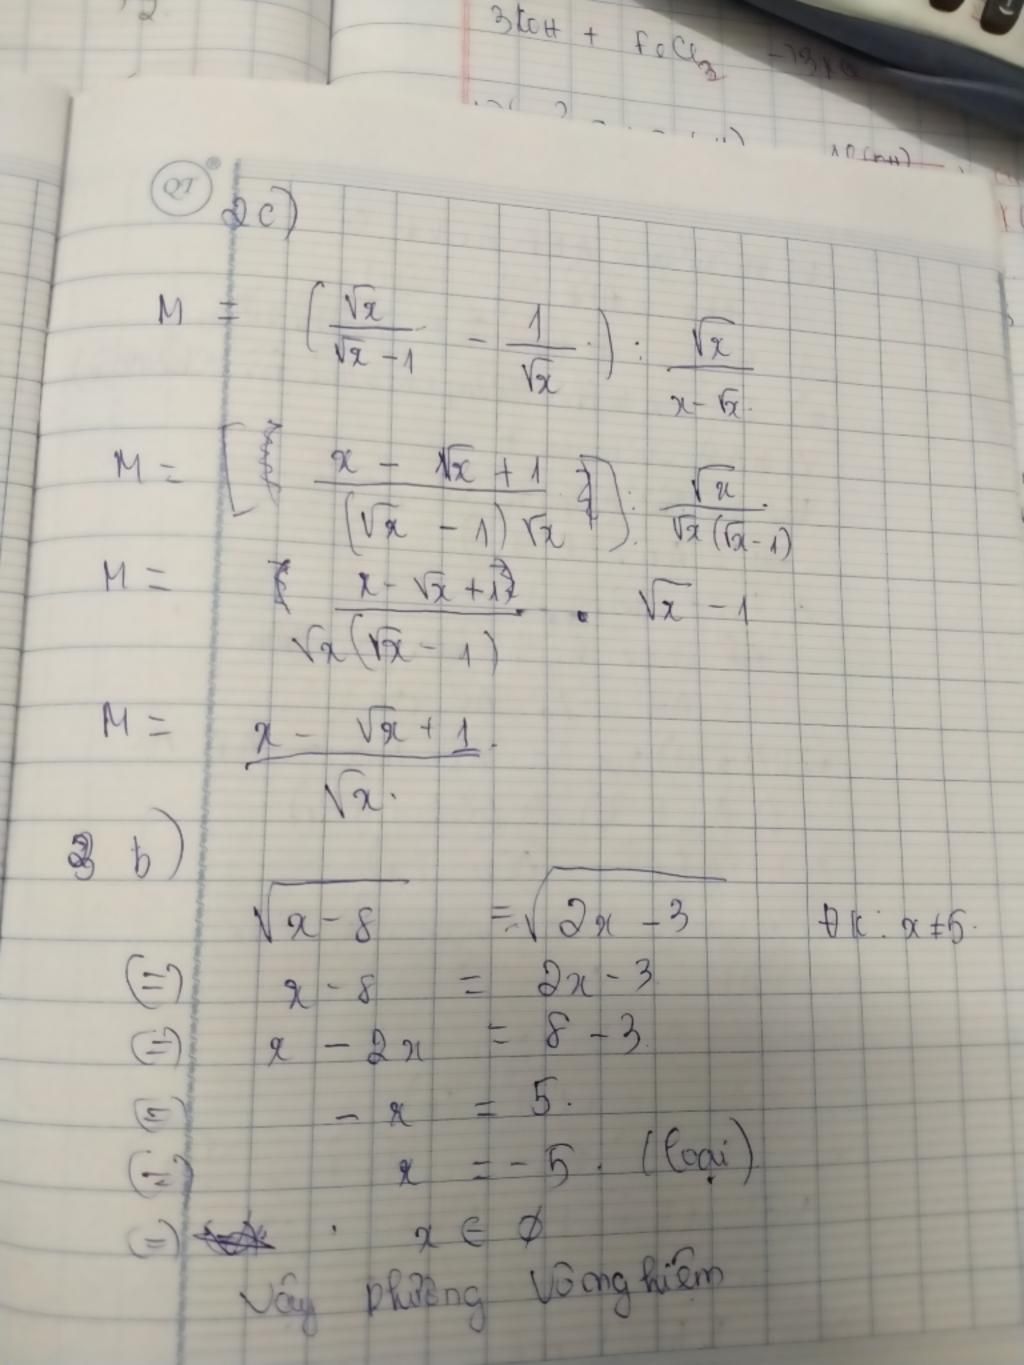 3KOH + FeCl₃
QT
2c)
M = (√x/(√x - 1) - 1/√x) : √x/(x - √x)
M = [(x - √x + 1)/((√x - 1)√x)] : √x/(√x(√x - 1))
M = (x - √x + 1)/(√x(√x - 1)) . √x - 1
M = (x - √x + 1)/√x.
3 b)
√(x - 8) = √(2x - 3) ĐK: x ≠ 5.
(=) x - 8 = 2x - 3
(=) x - 2x = 8 - 3
(=) - x = 5.
(=) x = - 5. (loại)
(=) x ∈ ∅
Vậy phường vô nghiệm